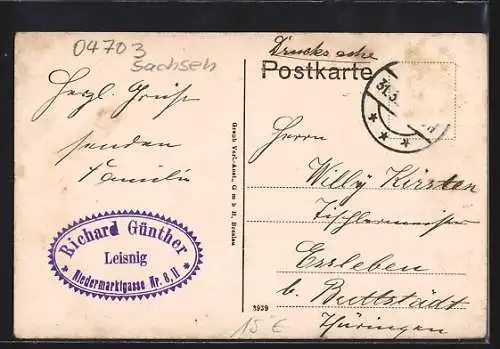 04703
Sachsen
Drucksache
Postkarte
31.5.
Herzl. Grüße
senden
Familie
Richard Günther
Leisnig
Niedermarktgasse Nr. 8, II
Graph. Verl.-Anst., G m b H, Breslau
Herrn
Willy Kirsten
Tischlermeister
Essleben
b. Buttstädt
Thüringen
3939
15 €